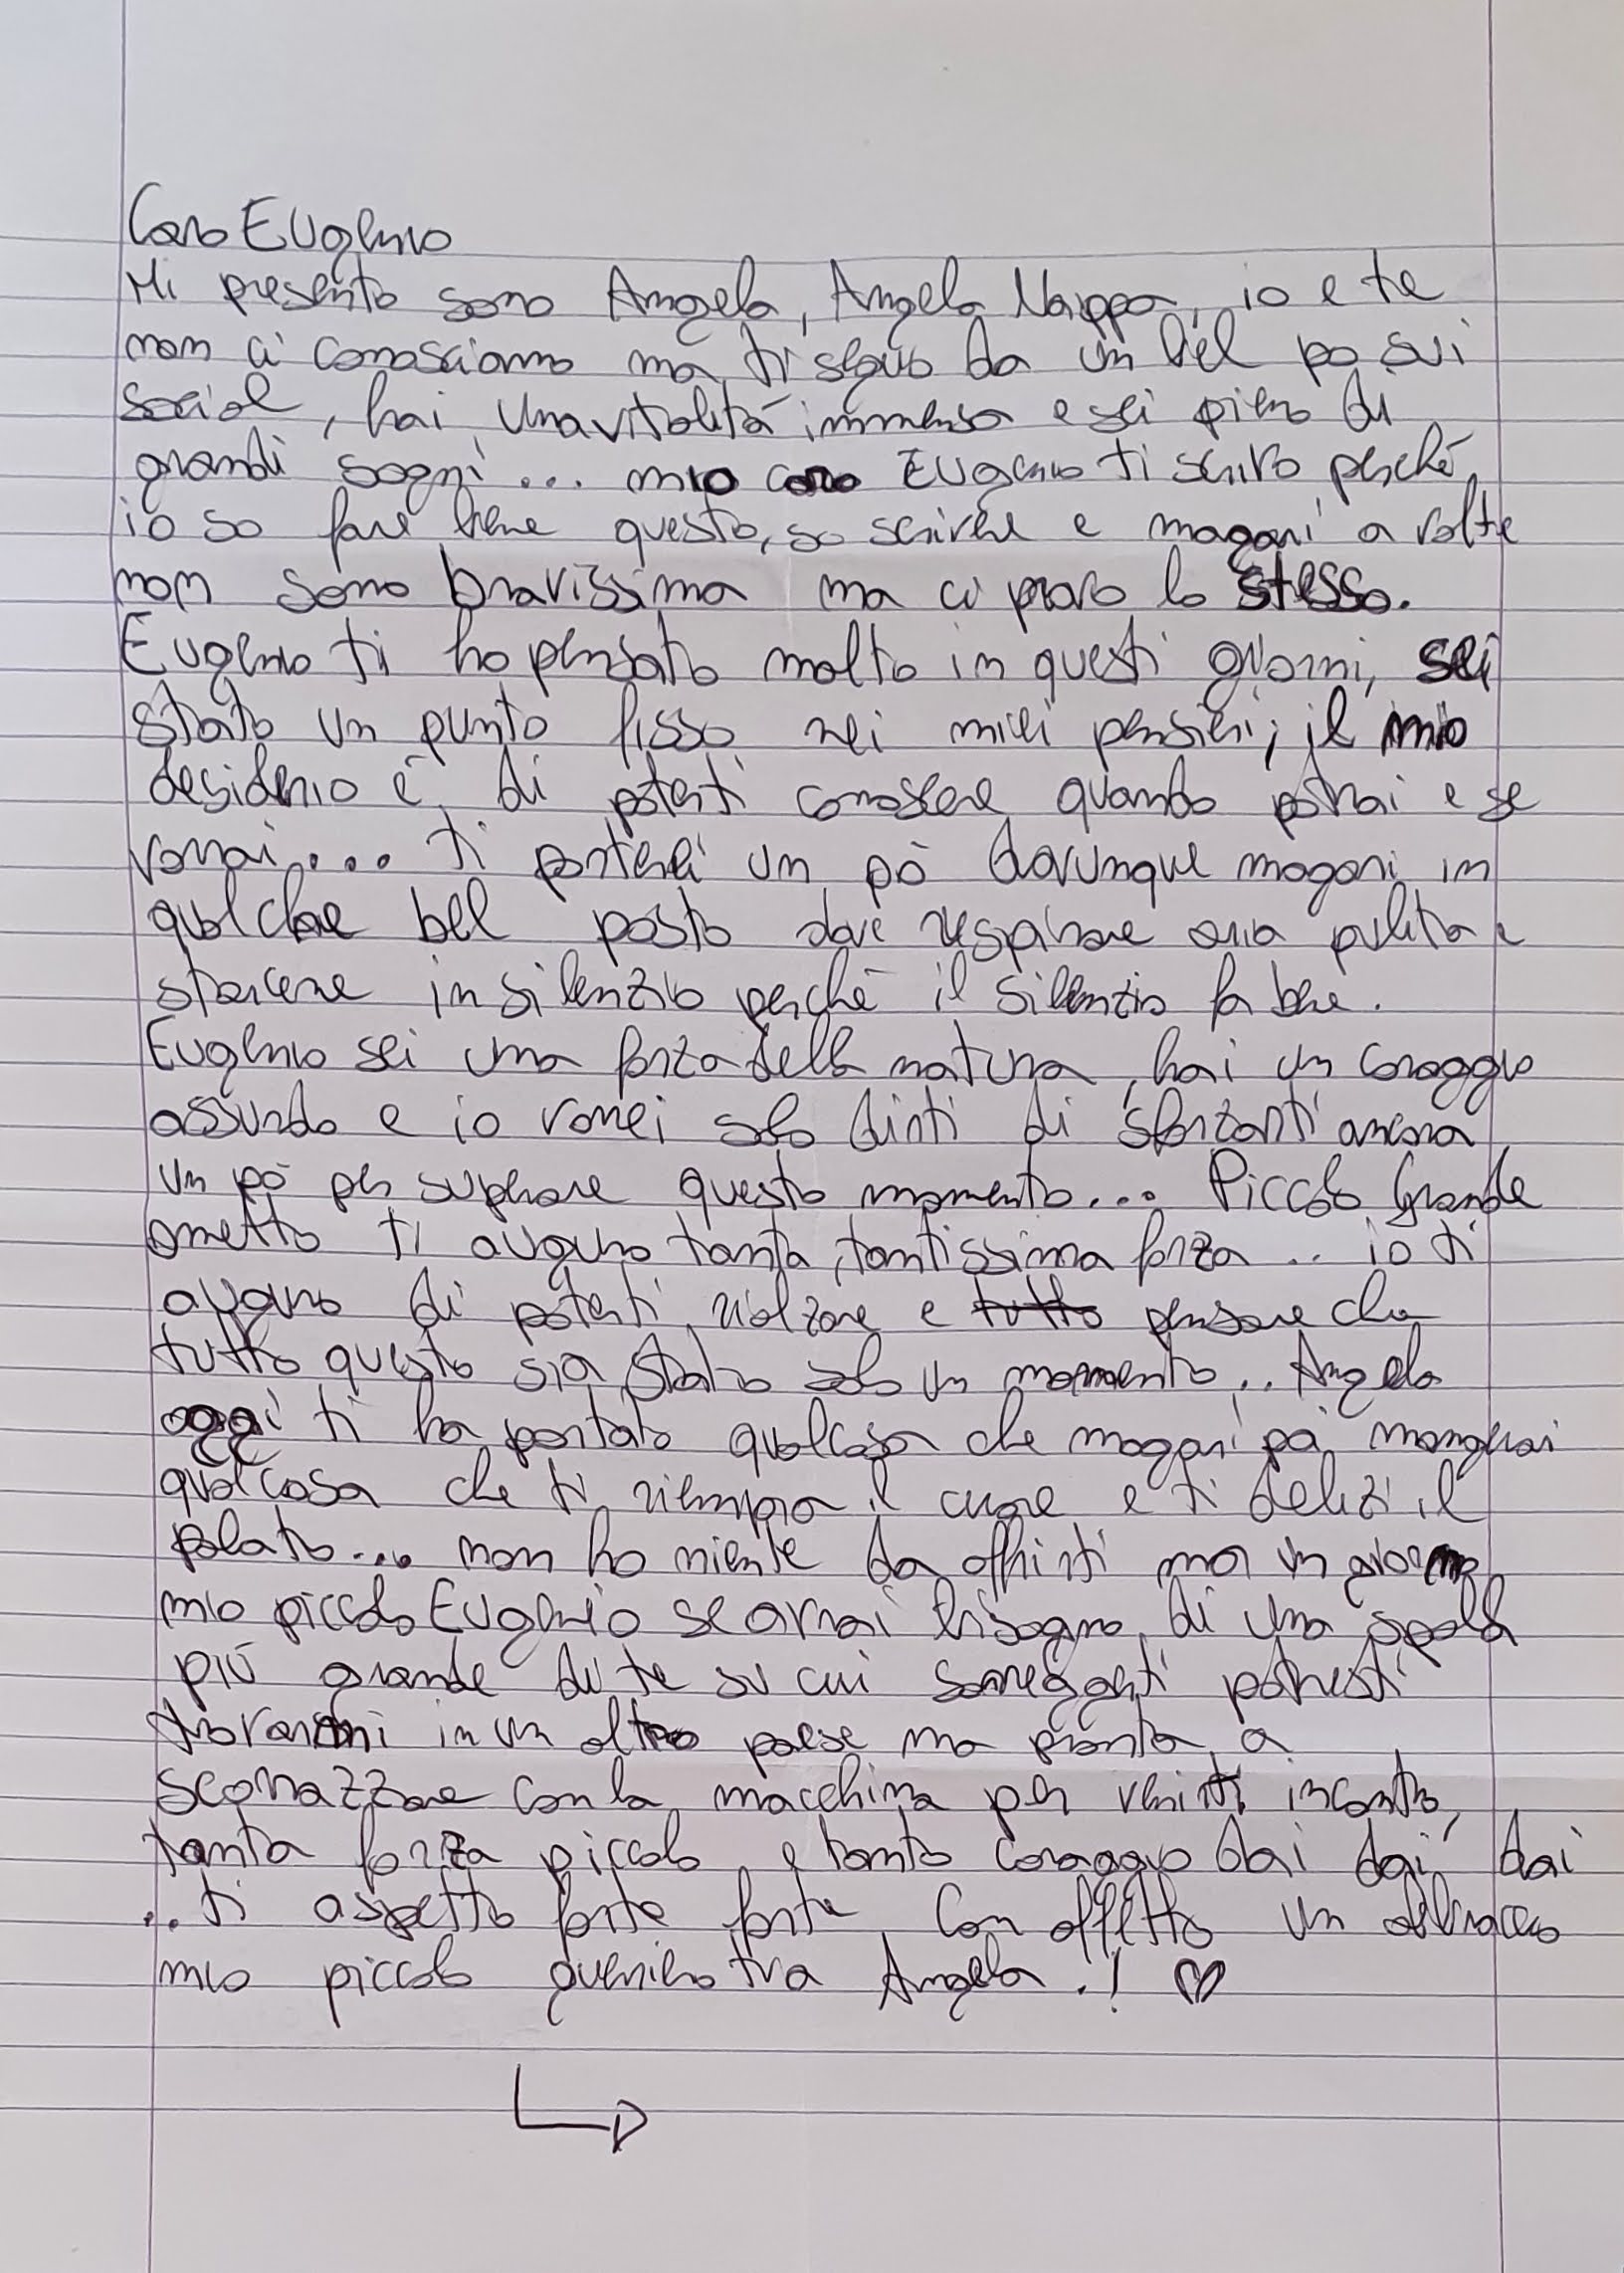 Caro Eugenio
Mi presento sono Angela, Angela Nappa, io e te
non ci conosciamo ma ti seguo da un bel po sui
social, hai una vitalità immensa e sei pieno di
grandi sogni... mio caro Eugenio ti scrivo perché
io so fare bene questo, so scrivere e magari a volte
non sono bravissima ma ci provo lo stesso.
Eugenio ti ho pensato molto in questi giorni, sei
stato un punto fisso nei miei pensieri, il mio
desiderio è di poterti conoscere quando potrai e se
vorrai... ti porterei un pò dovunque magari in
qualche bel posto dove respirare aria pulita e
starcene in silenzio perché il silenzio fa bene.
Eugenio sei una forza della natura, hai un coraggio
assurdo e io vorrei solo dirti di sforzarti ancora
un pò per superare questo momento... Piccolo Grande
ometto ti auguro tanta, tantissima forza .. io ti
auguro di poterti rialzare e tutto pensare che
tutto questo sia stato solo un momento .. Angela
oggi ti ha portato qualcosa che magari pà mangiar
qualcosa che ti riempia il cuore e ti delizi il
palato... non ho niente da offrirti ma un giorno
mio piccolo Eugenio se avrai bisogno di una spalla
più grande di te su cui sorreggerti potresti
trovarmi in un altro paese ma pronta a
scorrazzare con la macchina per venirti incontro,
tanta forza piccolo e tanto coraggio dai dai dai
.. ti aspetto forte forte Con affetto un abbraccio
mio piccolo guerriero tua Angela .! ♡